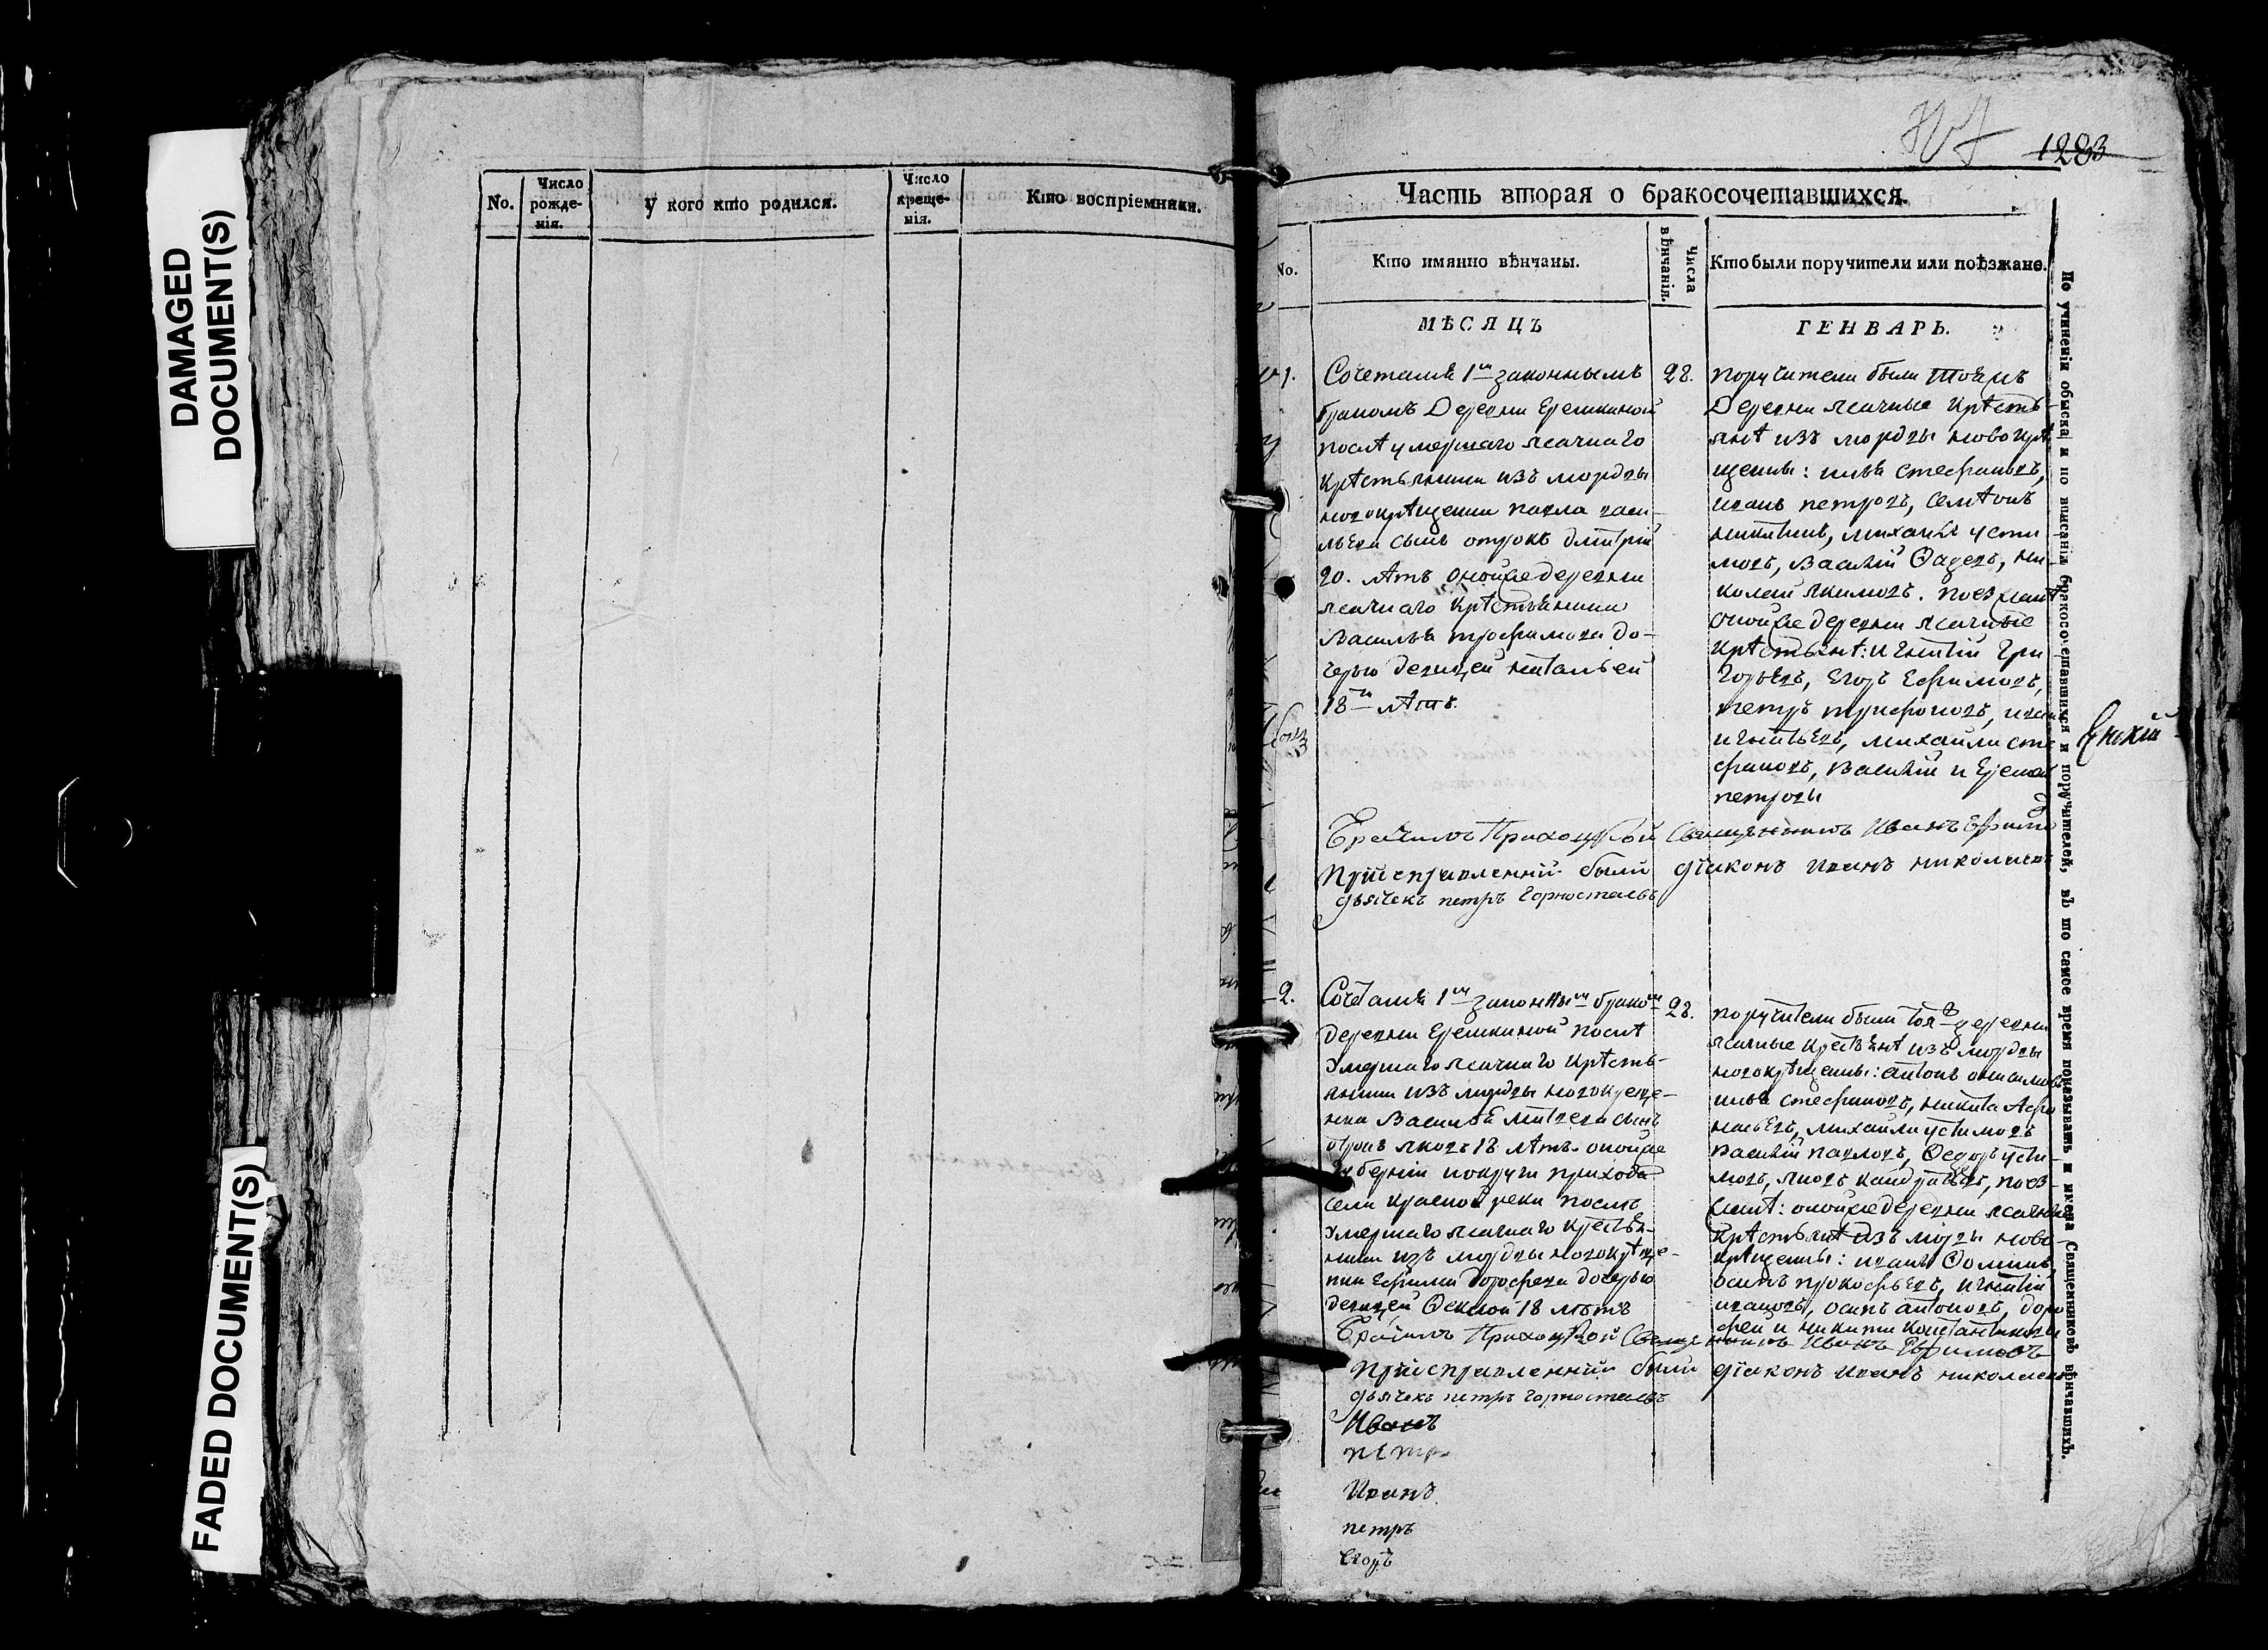 DAMAGED
DOCUMENT(S)
FADED DOCUMENT(S)
No.
Число рожде-нія.
У кого кто родился.
Число креще-нія.
Кто воспріемники.
1283
Часть вторая о бракосочетавшихся.
No.
Кто имянно вѣнчаны.
Числа вѣнчанія.
Кто были поручители или поѣзжане.
МѢСЯЦЪ
ГЕНВАРЬ.
1.
Сочетался 1м законнымъ
бракомъ Деревни Ерешкиной
послѣ умершаго ясачнаго
крѣстьянина изъ мордвы
новокрѣщенна павла васи-
льева сынъ отрокъ дмитрій
20. лѣтъ оной же деревни
ясачнаго крѣстьянина
Василья трофимова до-
черью девицей натальей
18ти лѣтъ.
28.
поручители были тоя жъ
Деревни ясачные крѣсть-
янѣ изъ мордвы новокрѣ
щенны: илья стефановъ,
иванъ петровъ, семѣонъ
никитинъ, михаила усти
мовъ, Василій Ѳадевъ, ни-
колай якимовъ. поезжанѣ
оной же деревни ясачные
крѣстьянѣ: игнатій гри
горьевъ, Егоръ Ефимовъ,
петръ трифоновъ, иванъ
игнатьевъ, михайла сте
фановъ, Василій и Еремѣй
петровы
Брачилъ Приходской Священникъ Иванъ Ефимо
При исправленіи были діаконъ иванъ николаевъ
дьячекъ петръ горностаевъ
2.
Сочетался 1м законным браком
деревни Ерешкиной послѣ
умершаго ясачнаго крѣсть-
янина изъ мордвы новокреще-
нна Василья матвеева сынъ
отрокъ яковъ 18 лѣтъ. оной же
губерніи и округи прихода
села красной реки послѣ
умершаго ясачнаго крестьян-
нина изъ мордвы новокрѣще-
нна Ефима дорофеева дочерью
девицей Ѳеклой 18 лѣтъ
28.
поручители были тоя ж деревни
ясачные крестьянѣ изъ мордвы
новокрѣщенны: антонъ онисимовъ
илья стефановъ, никита Афо
насьевъ, михайла устимовъ
Василій павловъ, Ѳедоръ усти-
мовъ, яковъ кандратьевъ, поез-
жанѣ: оной же деревни ясачные
крѣстьянѣ изъ мордвы ново-
крѣщенны: иванъ Ѳоминъ,
осипъ прокофьевъ, игнатій
ивановъ, осипъ антоновъ, доро
фей и никита константиновы
Брачилъ Приходской Священникъ Иванъ Ефимовъ
При исправленіи были діаконъ иванъ николаевъ
дьячекъ петръ горностаевъ
Иванъ
петр
Иванъ
петръ
Егоръ
По учиненіи обыска и по вписаніи бракосочетавшихся и поручителей, въ то самое время показывать и имена Священниковъ вѣнчавшихъ.